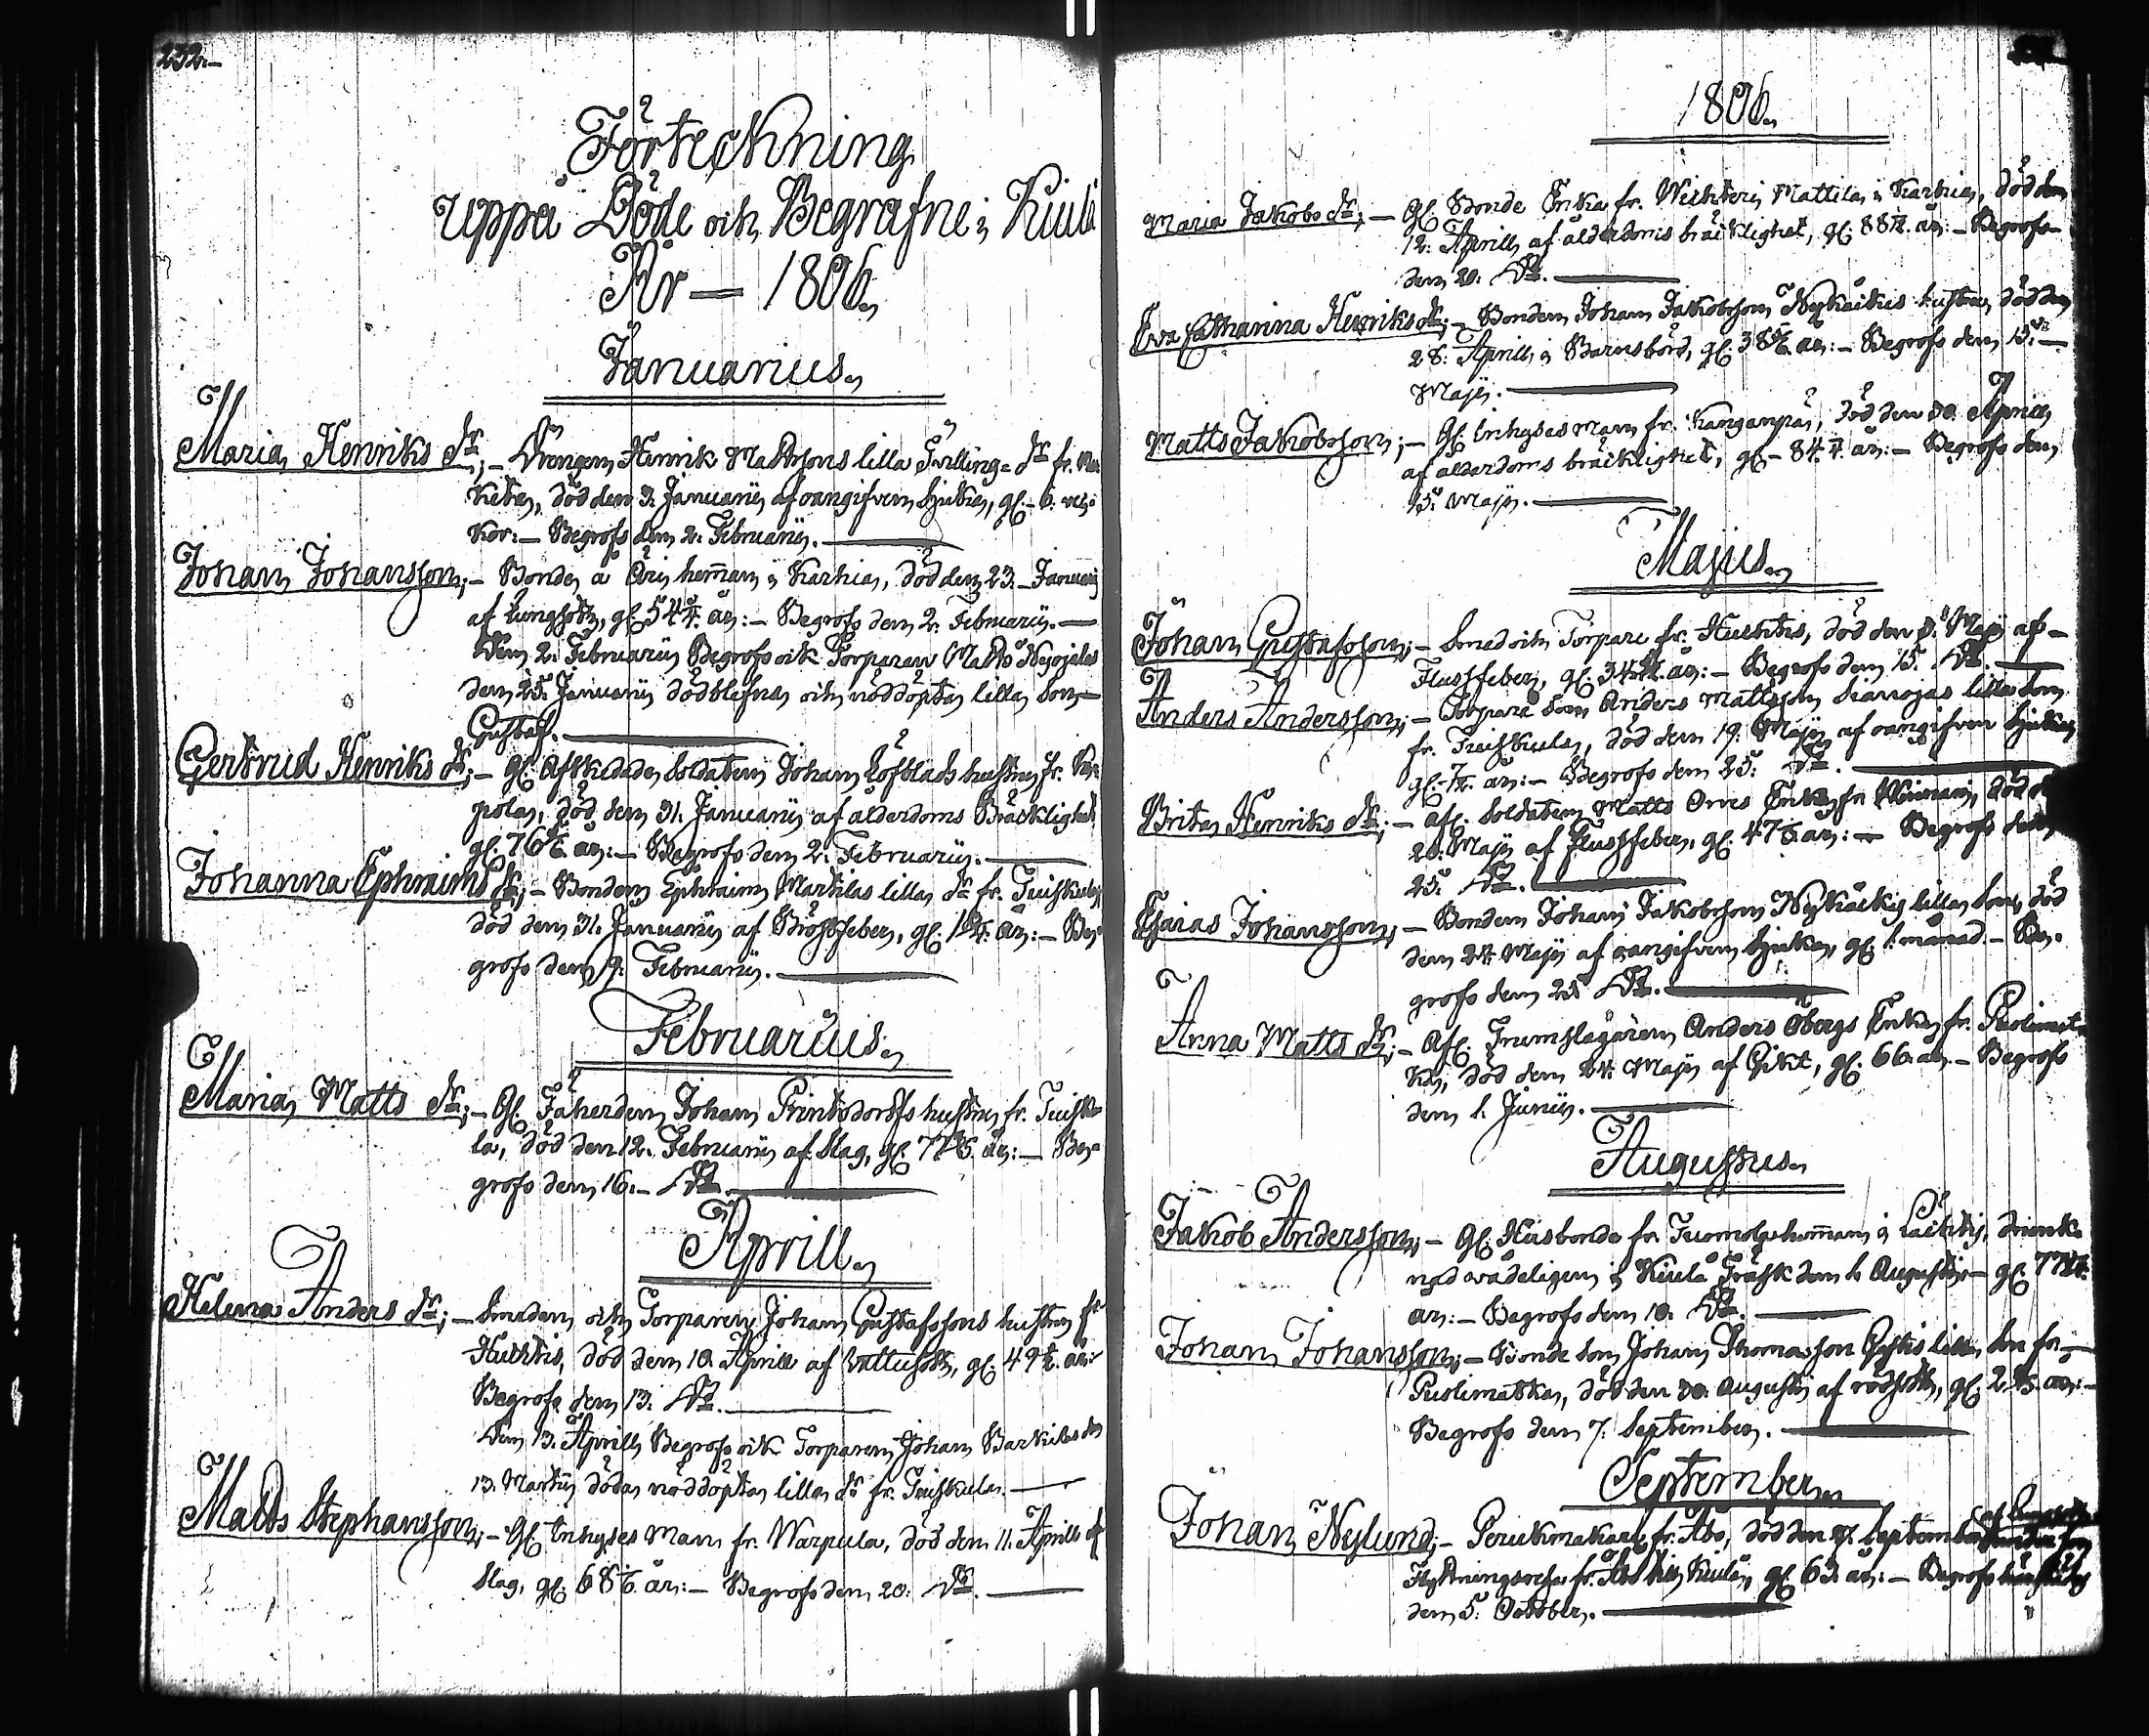 232.
Förteckning
uppå Döde och Begrafne i Kiula
År — 1806.
Januarius.
Maria Henriks dr; — Drengen Henrik Mattssons lilla Tvillings dr fr.
död den 3. Januarii af oangifven sjuka, gl. 6. vec-
kor: — Begrofs den 2. Februarii.
Johan Johansson; — Bonden å Ori hemman i Karhia, död den 23. Januarii
af lungsott, gl. 54 år: — Begrofs den 2. Februarii. —
Den 2. Februarii Begrofs ock Torparen Matts Nyojalas
den 25. Januarii dödblefna och nöddöpta lilla Son —
Gustaf.
Gertrud Henriks dr; — gl. Afskedade Soldaten Johan Löfblads hustru fr.
pola, död den 31. Januarii af ålderdoms Bräcklighet
gl. 76 år: — Begrofs den 2. Februarii.
Johanna Ephraims dr; — Bonden Ephraim Markilas lilla dr fr. Tuiskula
död den 31. Januarii af Bröstfeber, gl. år: — Be-
grofs den 9. Februarii.
Februarius.
Maria Matts dr; — Gl. Fäherden Johan Printsdorffs hustru fr. Tuisku-
la, död den 12. Februarii af Slag, gl. 77 år: — Be-
grofs den 16. — Do.
Aprill.
Helena Anders dr; — Smeden och Torparen Johan Gustafssons hustru fr
Huhtis, död den 10. Aprill af Vattusott, gl. 49 år:
Begrofs den 13. Do.
Den 13. Aprill Begrofs ock Torparen Johan Barkilas den
13. Martii döda nöddöpta lilla dr fr. Tuiskula. —
Matts Stephansson; — Gl. Inhyses Man fr. Warpula, död den 11. Aprill af
Slag, gl. 68 år: — Begrofs den 20. Do.
1806.
Maria Jakobs dr; — Gl. Bonde Enka fr. Mattila i Karhia, död den
12. Aprill af ålderdoms bräcklighet, gl. 88 år: — Begrofs
den 20. Do.
Eva Catharina Henriks dr; — Bonden Johan Jakobsson Nykäikis hustru, död den
28. Aprill i Barnsbörd, gl. 38 år: — Begrofs den 15. —
Maji.
Matts Jakobsson; — Gl. Inhyses Man fr. Kanganpää, död den 30. Aprill
af ålderdoms bräcklighet, gl. 84 år: — Begrofs den
15. Maji.
Majus.
Johan Gustafsson; — Smed och Torpare fr. Huhtis, död den 8. Maji af —
Flussfeber, gl. 34 år: — Begrofs den 15. Do. —
Anders Andersson; — Torpare Son Anders Mattsson lilla Son
fr. Tuiskula, död den 19. Maji af oangifven sjuka
gl. år: — Begrofs den 25. Do.
Brita Henriks dr; — afl. Soldaten Matts Enka fr död
20. Maji af Flussfeber, gl. 47 år: — Begrofs den
25. Do.
Esaias Johansson; — Bonden Johan Jakobsson Nykäikis lilla Son, död
den 24. Maji af oangifven sjuka, gl. 1. månad. — Be-
grofs den 25. Do.
Anna Matts dr; — Afl. Trumslagaren Anders Öbergs Enka fr. Puolimat-
ka, död den 24. Maji af Gikt, gl. 66. år. — Begrofs
den 1. Junii.
Augustus.
Jakob Andersson; — Gl. Husbonde fr. hemman i Laihtis, drunk-
nad vådeligen i Kiula Träsk den 1. Augusti — gl. 77
år: — Begrofs den 10. Do.
Johan Johansson; — Bonde Son Johan Thomasson lilla Son fr. —
Puolimatka, död den 30. Augusti af rödsott, gl. 2 år: —
Begrofs den 7. September.
September.
Johan Nylund; — Perukmakare fr. Åbo, död den 27. September
Flyttningsresa fr. Åbo till Kiula, gl. 63. år: — Begrofs
den 5. October.